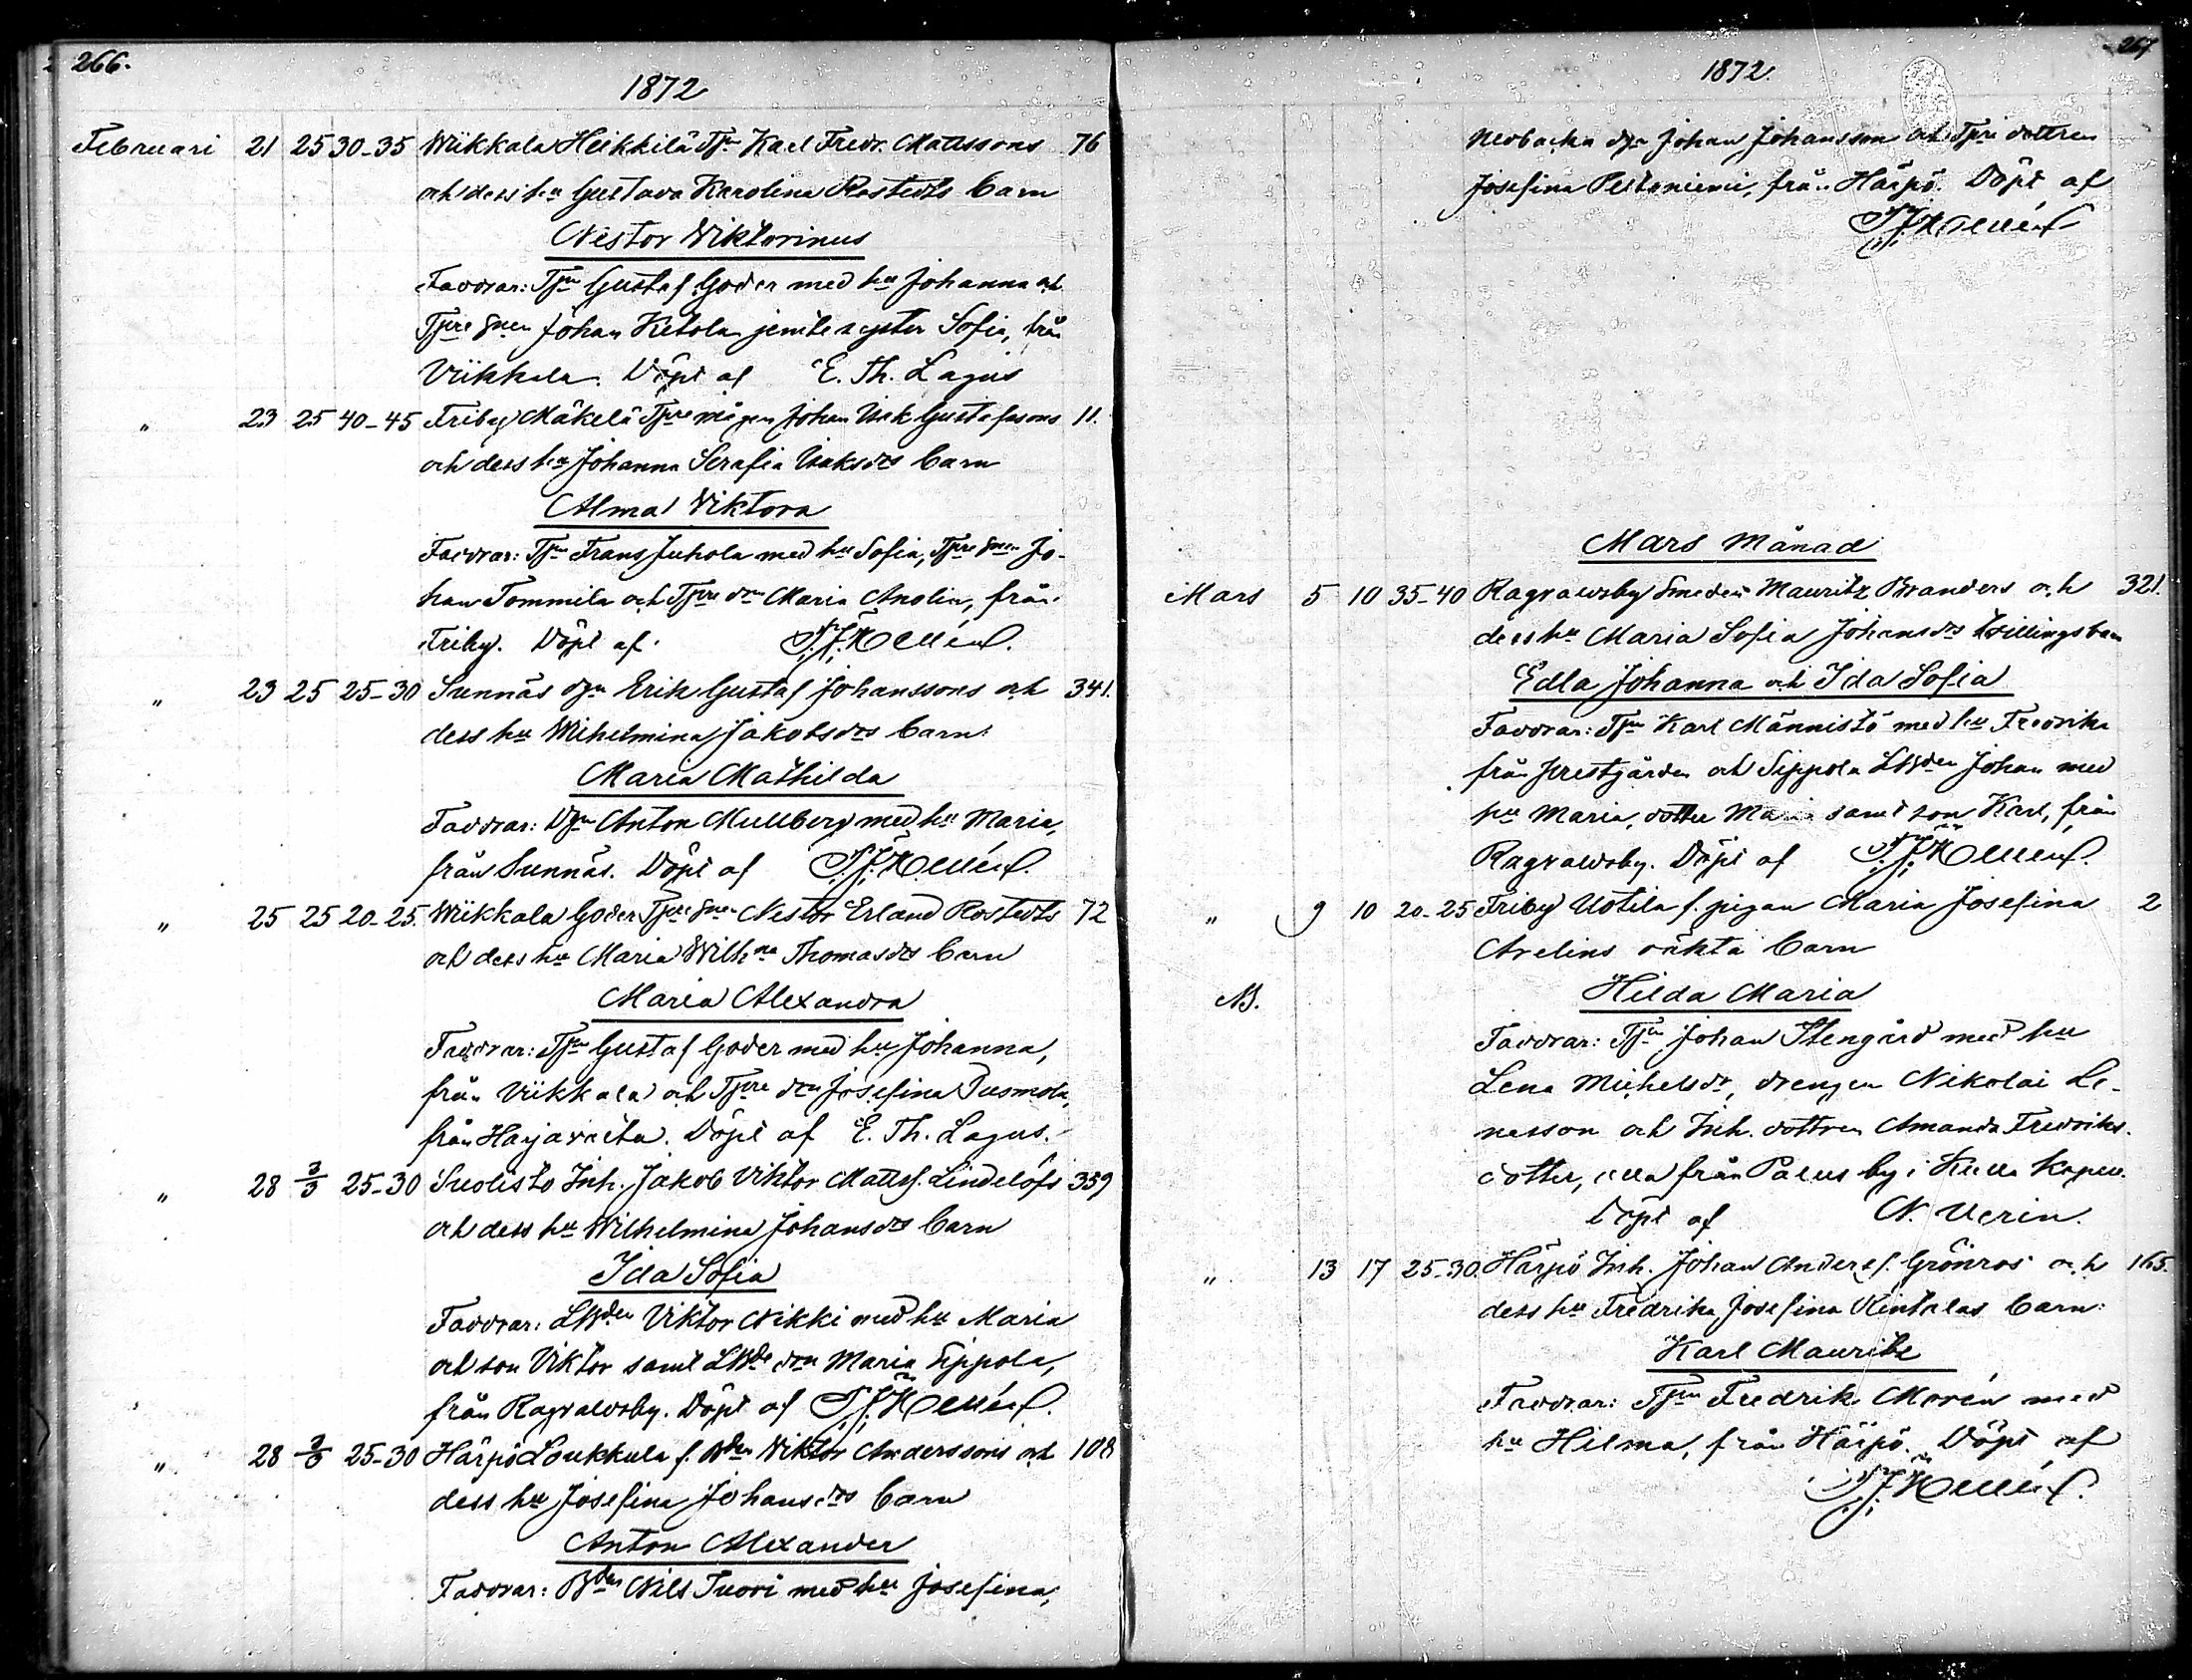 266.
1872
Februari 21 25 30-35 Wiikkala Heikkilä Tpn Karl Fredr. Mattssons 76
och dess hu Gustava Karolina Rostedts barn
Nestor Viktorinus
Faddrar: Tpn Gustaf Goder med hu Johanna och
Tpre snen Johan Ketola jemte syster Sofia, från
Viikkala. Döpt af E. Th. Lagus
" 23 25 40-45 Friby Mäkelä Tpre mågen Johan Isak Gustafssons 11.
och dess hu Johanna Serafia Isaksdrs barn
Alma Viktora
Faddrar: Tpn Frans Juhola med hu Sofia, Tpre snen Jo-
han Tommila och Tpre drn Maria Anolin, från
Friby. Döpt af
" 23 25 25-30 Sunnäs dgn Erik Gustaf Johanssons och 341.
dess hu Wilhelmina Jakobsdrs barn
Maria Mathilda
Faddrar: Dgn Anton Mullberg med hu Maria,
från Sunnäs. Döpt af
" 25 25 20-25. Wiikkala Goder Tpre snen Nestor Erland Rostedts 72
och dess hu Maria Wilhna Thomasdrs barn
Maria Alexandra
Faddrar: Tpn Gustaf Goder med hu Johanna,
från Viikkala och Tpre drn Josefina Pusmola,
från Harjavalta. Döpt af E. Th. Lagus.
" 28 3/3 25-30 Suolisto Inh. Jakob Viktor Mattss. Lindelöfs 359
och dess hu Wilhelmina Johansdrs barn
Ida Sofia
Faddrar: LBden Viktor Nikki med hu Maria
och son Viktor samt LBde drn Maria Sippola,
från Ragvaldsby. Döpt af
" 28 3/3 25-30 Härpö Loukkula f. Bden Viktor Anderssons och 108
dess hu Josefina Johansdrs barn
Anton Alexander
Faddrar: Bden Nils Tuori med hu Josefina,
267
1872
Nedbacka dgn Johan Johansson och Tpre dottren
Josefina Peltoniemi, från Härpö. Döpt af
Mars Månad
Mars 5 10 35-40 Ragvaldsby Smeden Mauritz Branders och 321.
dess hu Maria Sofia Johansdrs tvillingsbarn
Edla Johanna och Ida Sofia
Faddrar: Tpn Karl Männistö med hu Fredrika
från prestgården och Sippola LBden Johan med
hu Maria, dotter Maria samt son Karl, från
Ragvaldsby. Döpt af
" 9 10 20-25 Friby Uotila f. pigan Maria Josefina 2
Avelins oäkta barn
NB. Hilda Maria
Faddrar: Tpn Johan Stengård med hu
Lena Michelsdr, drengen Nikolai Le-
nasson och Inh. dottren Amanda Fredriks-
dotter, alla från Palus by i Kulla Kapell.
Döpt af N. Uerin.
" 13 17 25-30. Härpö Inh. Johan Anderss. Grönros och 165.
dess hu Fredrika Josefina Kintalas barn:
Karl Mauritz
Faddrar: Tpn Fredrik Morén med
hu Hilma, från Härpö. Döpt af